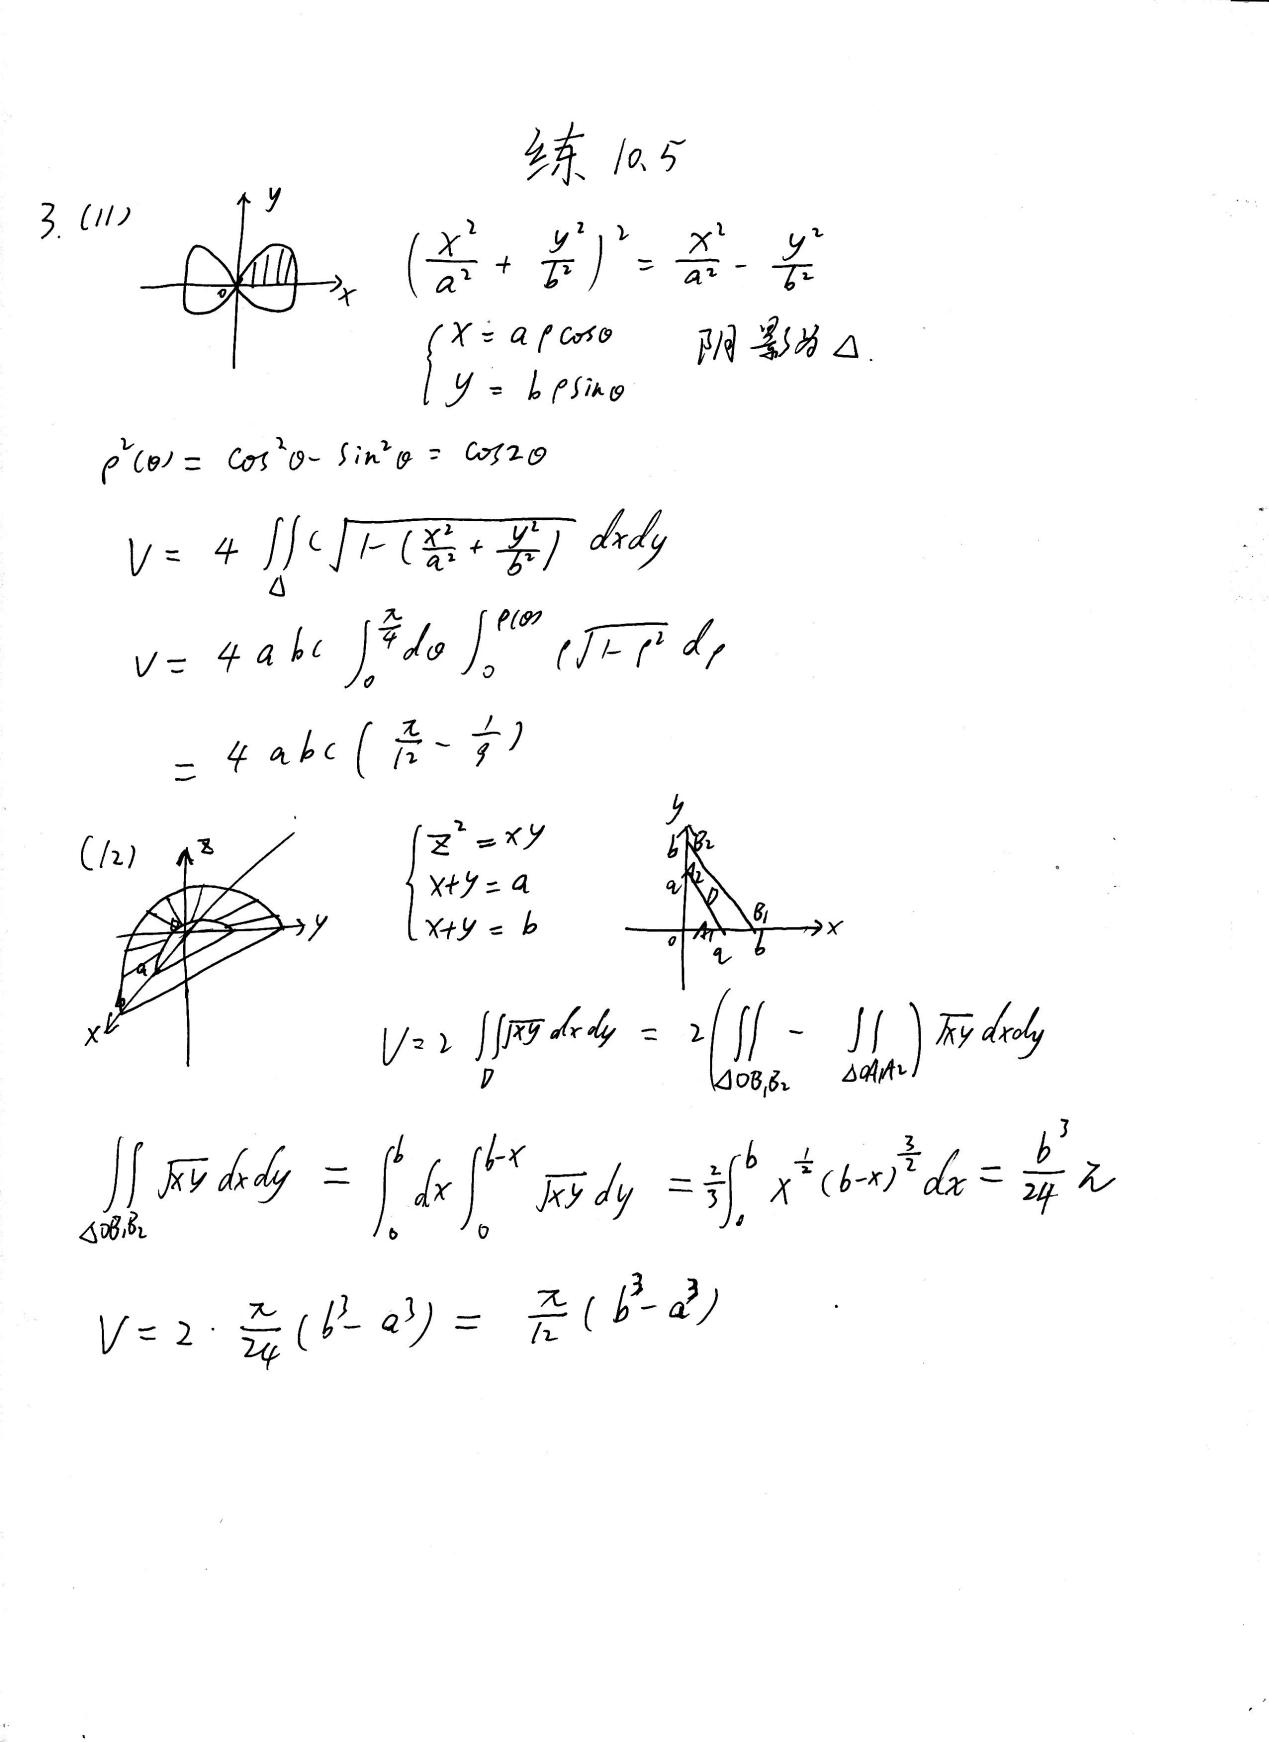 练 10.5
3. (11)
y
x
0
(x²/a² + y²/b²)² = x²/a² - y²/b²
{ x = aρcosθ
y = bρsinθ
阴影为 Δ.
ρ²(θ) = cos²θ - sin²θ = cos2θ
V = 4 ∬_Δ c√(1-(x²/a² + y²/b²)) dxdy
V = 4abc ∫_0^{π/4} dθ ∫_0^{ρ(θ)} ρ√(1-ρ²) dρ
= 4abc (π/12 - 1/9)
(12)
z
y
x
0
a
b
{ z² = xy
x+y = a
x+y = b
y
b B₂
a A₂
D
B₁
0 A₁ a b
x
V = 2 ∬_D √xy dxdy = 2(∬_{ΔOB₁B₂} - ∬_{ΔOA₁A₂}) √xy dxdy
∬_{ΔOB₁B₂} √xy dxdy = ∫_0^b dx ∫_0^{b-x} √xy dy = 2/3 ∫_0^b x^{1/2} (b-x)^{3/2} dx = b³/24 π
V = 2 · π/24 (b³ - a³) = π/12 (b³ - a³)